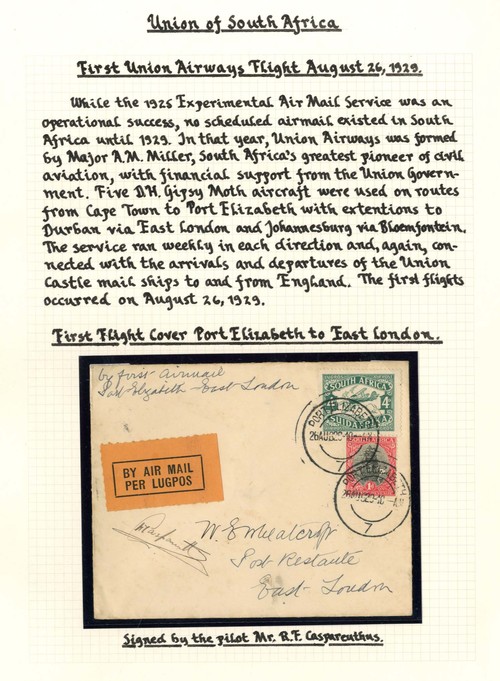 Union of South Africa
First Union Airways Flight August 26, 1929.
While the 1925 Experimental Air Mail Service was an
operational success, no scheduled airmail existed in South
Africa until 1929. In that year, Union Airways was formed
by Major A.M. Miller, South Africa's greatest pioneer of civil
aviation, with financial support from the Union Govern-
ment. Five D.H. Gipsy Moth aircraft were used on routes
from Cape Town to Port Elizabeth with extentions to
Durban via East London and Johannesburg via Bloemfontein.
The service ran weekly in each direction and, again, con-
nected with the arrivals and departures of the Union
Castle mail ships to and from England. The first flights
occurred on August 26, 1929.
First Flight Cover Port Elizabeth to East London.
by first Airmail
Port Elizabeth - East London
SOUTH AFRICA
4
SUIDAFRIKA
PORT ELIZABETH
26 AUG 29
7
BY AIR MAIL
PER LUGPOS
7
W. E Wheatcroft
Post Restante
East London
Signed by the pilot Mr. R.F. Caspareuthus.